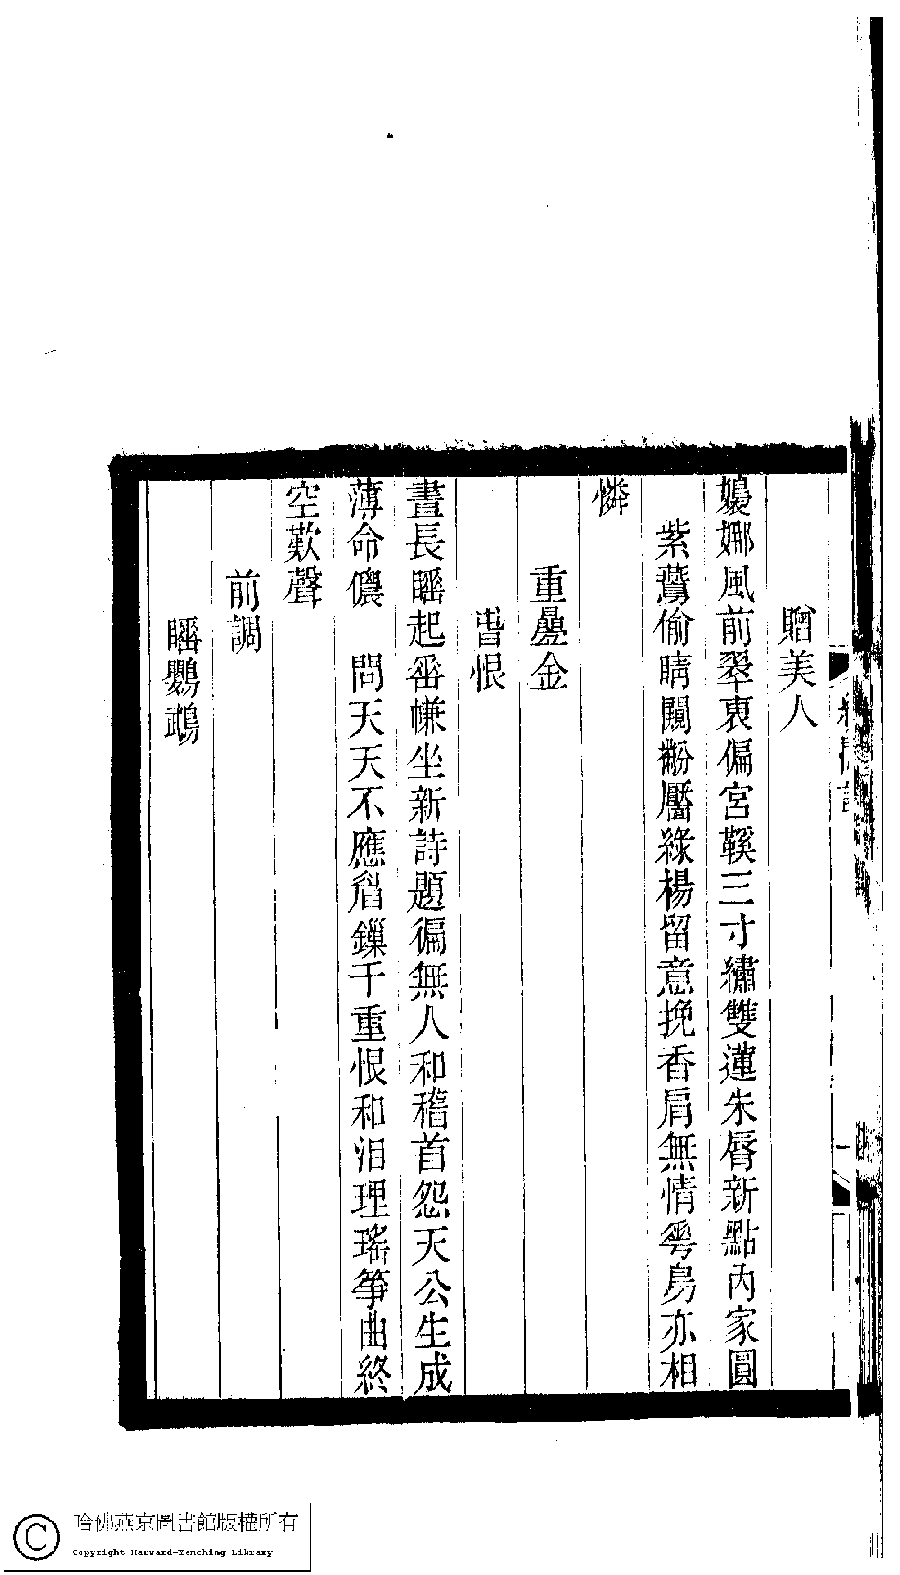 贈美人
嬝娜風前翠衷偏宮鞵三寸繡雙蓮朱脣新點內家圓
紫鷰偷睛闚粉靨綠楊留意挽香肩無情雩房亦相
憐
重疊金
眚恨
晝長瞃起番嫌坐新詩題徧無人和稽首怨天公生成
薄命儂　問天天不應眉鏁千重恨和泪理瑤箏曲終
空歎聲
前調
鸚鵡
一
哈佛燕京圖書館版權所有
Copyright Harvard-Yenching Library